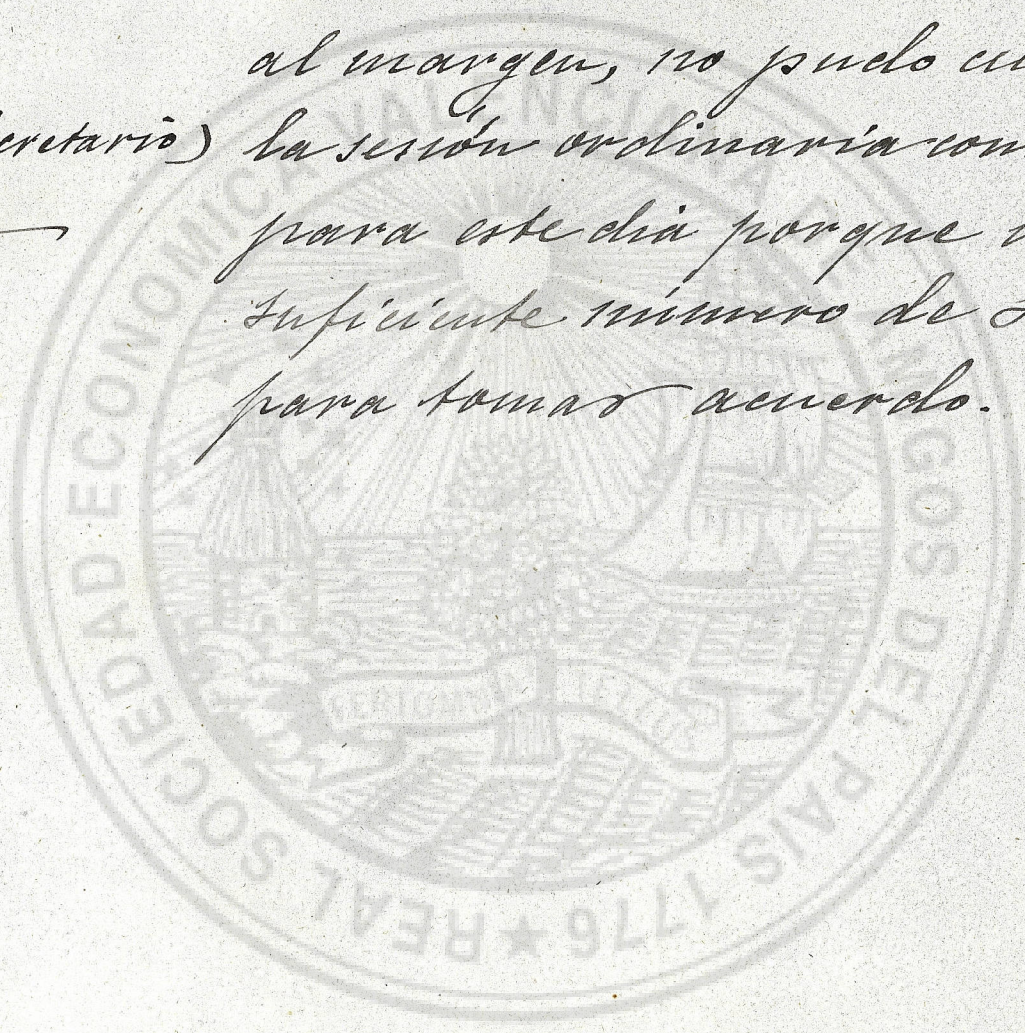 al margen, no pudo
ecretario) la sesión ordinaria con
para este dia porque
suficiente número de
para tomar acuerdo.
REAL SOCIEDAD ECONOMICA VALENCIANA DE AMIGOS DEL PAIS 1776 ★